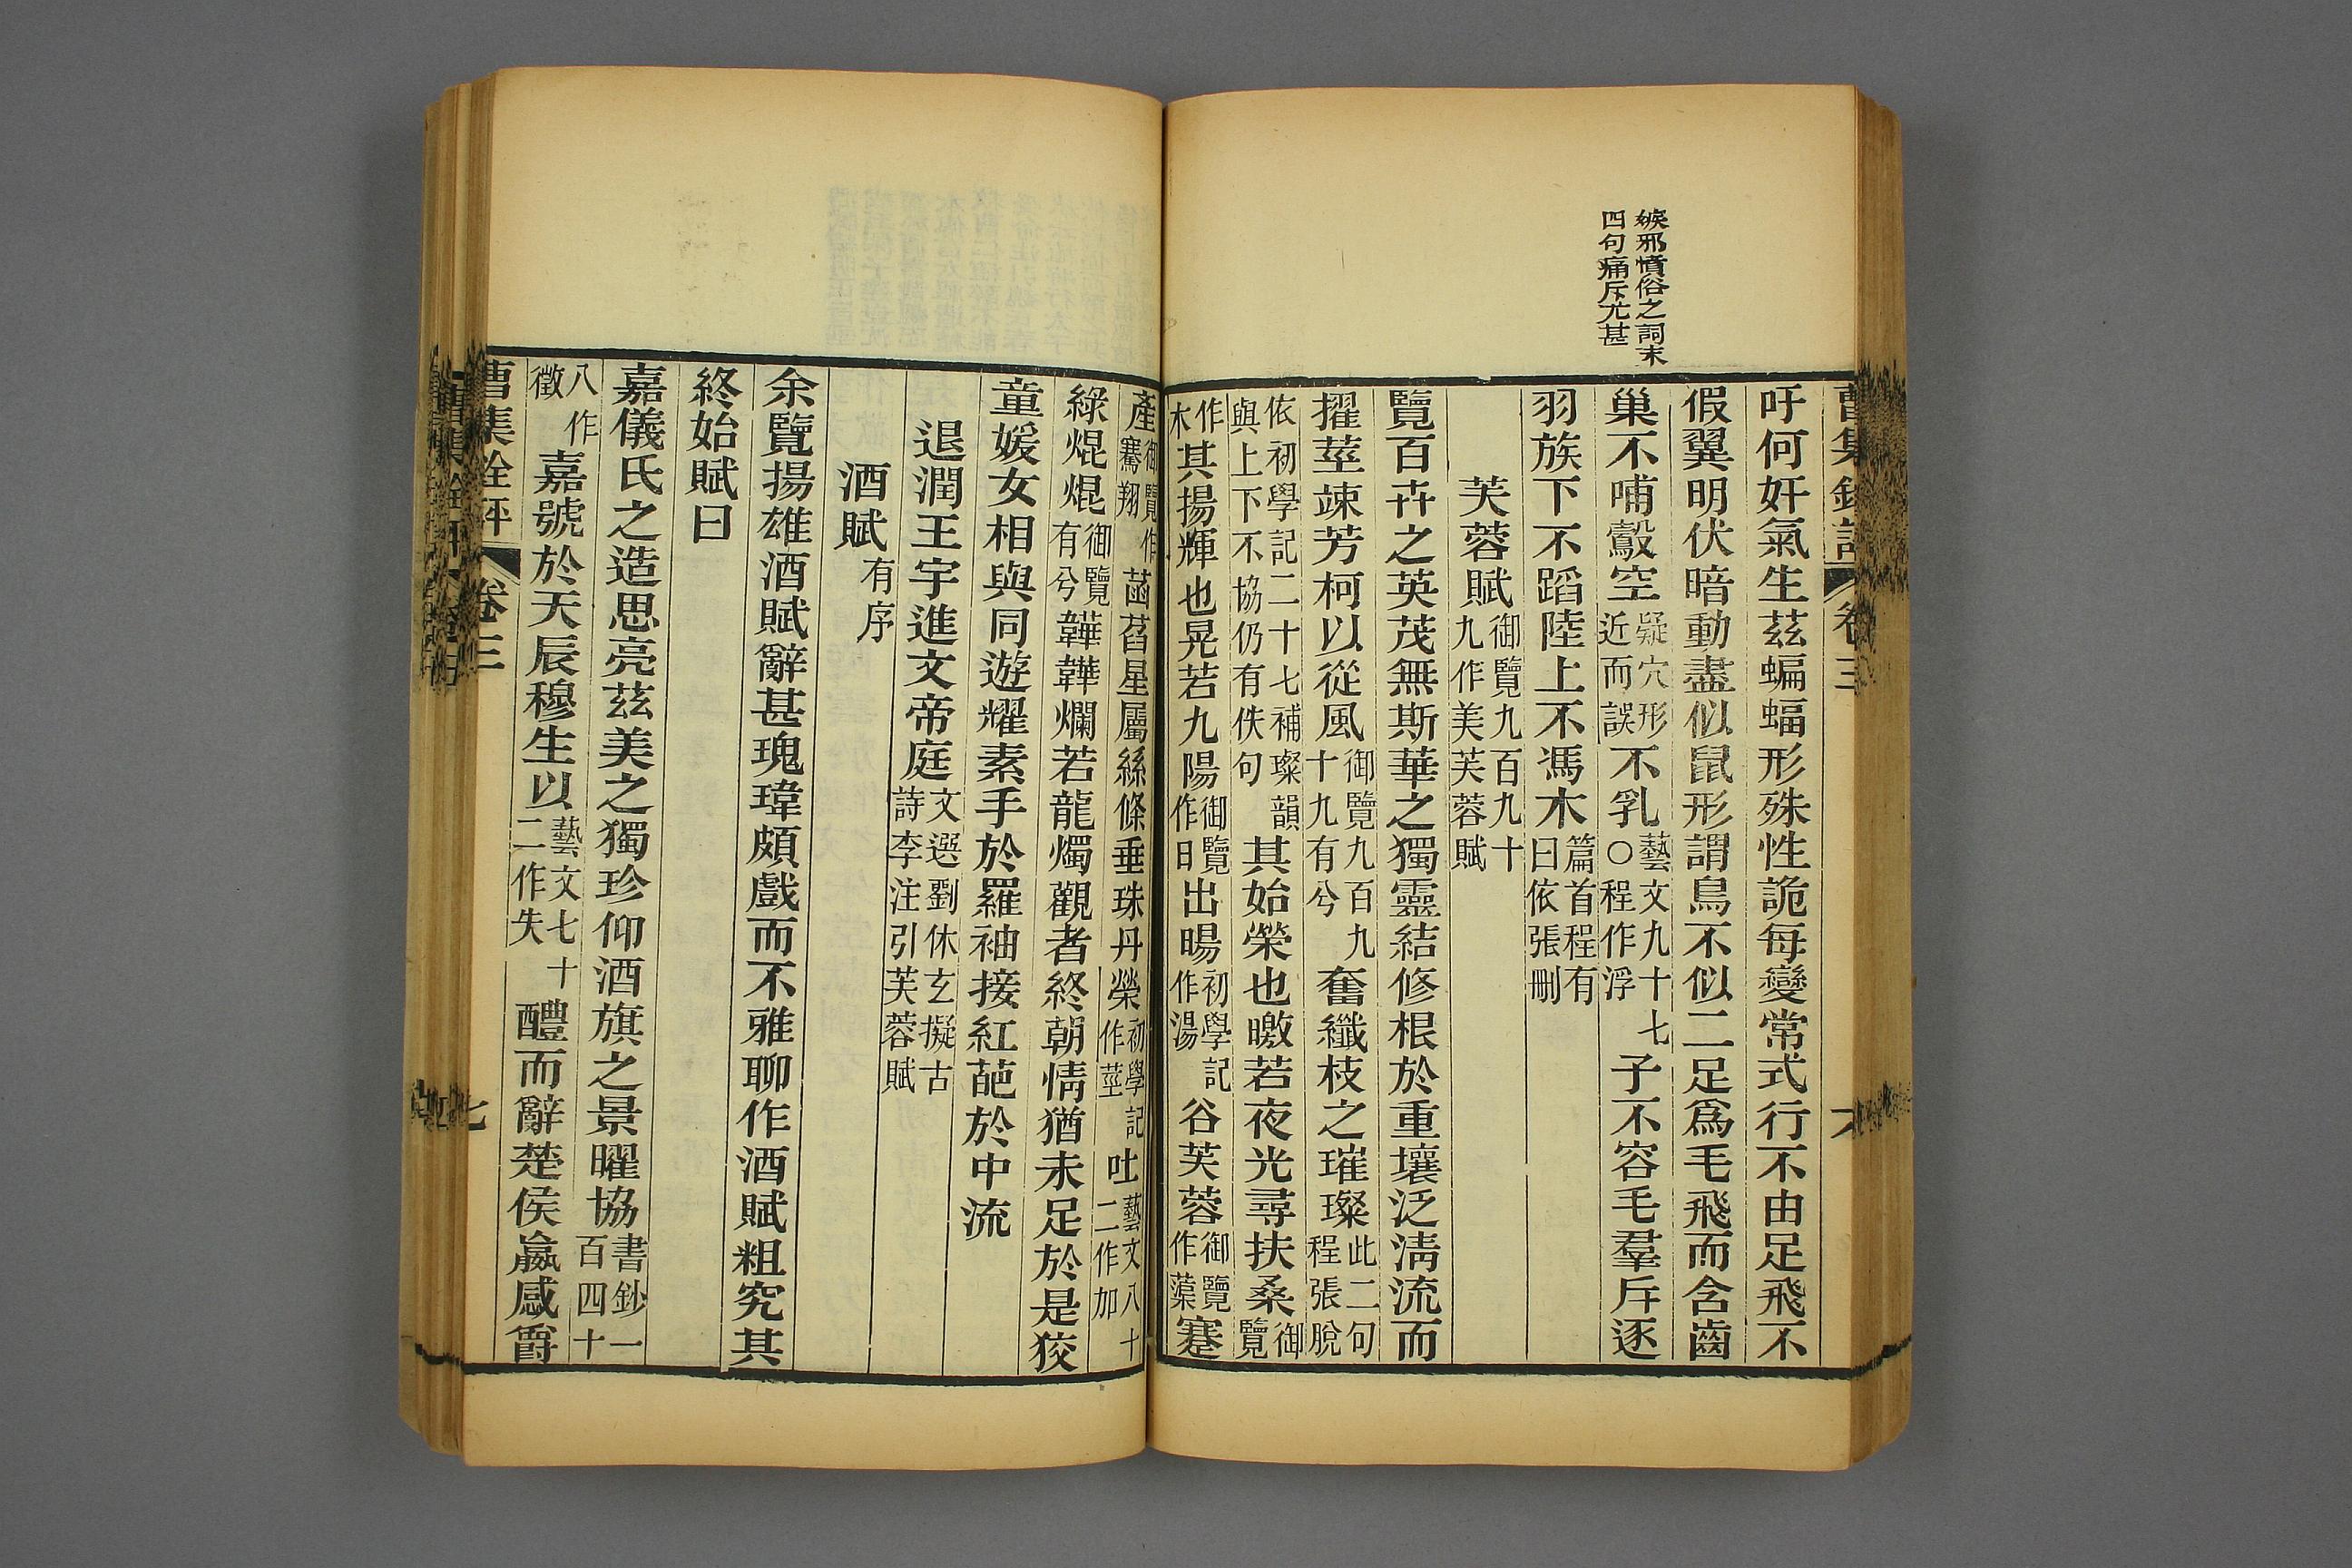 嫉邪憤俗之詞末
四句痛斥尤甚
吁何奸氣生茲蝙蝠形殊性詭每變常式行不由足飛不
假翼明伏暗動盡似鼠形謂鳥不似二足爲毛飛而含齒
巢不哺鷇空疑穴形近而誤不乳藝文九十七〇程作浮子不容毛羣斥逐
羽族下不蹈陸上不馮木篇首程有曰依張刪
芙蓉賦御覽九百九十九作美芙蓉賦
覽百卉之英茂無斯華之獨靈結修根於重壤泛淸流而
擢莖竦芳柯以從風御覽九百九十九有兮奮纖枝之璀璨此二句程張脫
依初學記二十七補璨韻與上下不協仍有佚句其始榮也曒若夜光尋扶桑御覽
作木其揚輝也晃若九陽御覽作日出暘初學記作湯谷芙蓉御覽作蕖蹇
產御覽作騫翔菡萏星屬絲條垂珠丹榮初學記作莖吐藝文八十二作加
綠焜焜御覽有兮韡韡爛若龍燭觀者終朝情猶未足於是狡
童媛女相與同遊擢素手於羅袖接紅葩於中流
退潤王宇進文帝庭文選劉休玄擬古詩李注引芙蓉賦
酒賦有序
余覽揚雄酒賦辭甚瑰瑋頗戲而不雅聊作酒賦粗究其
終始賦曰
嘉儀氏之造思亮茲美之獨珍仰酒旗之景曜協書鈔一百四十
八作徵嘉號於天辰穆生以藝文七十二作失醴而辭楚侯嬴感爵
曹集銓評 卷三 七